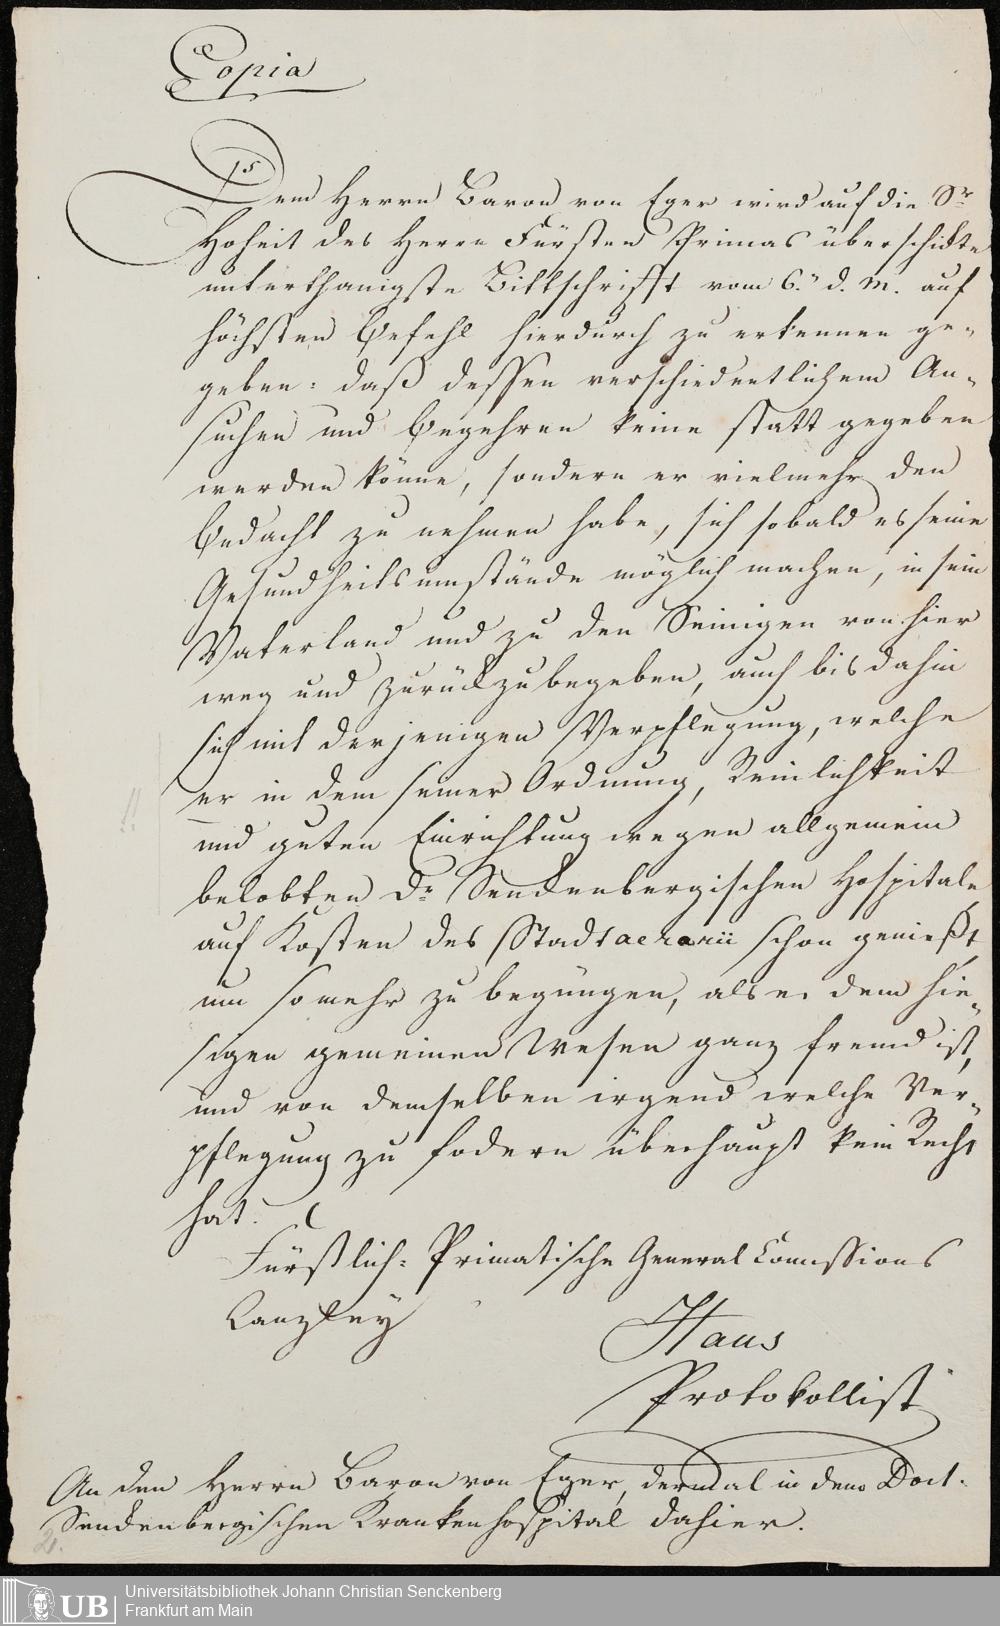 Copia
Dem Herrn Baron von Eger wird auf die Sr
Hoheit des Herrn Fürsten Primas überschickte
unterthanigste Bittschrifft vom 6.ⁿ d. M. auf
höchsten Befehl hierdurch zu erkennen ge-
geben: daß dessen verschiedentlichem An-
suchen und Begehren keine statt gegeben
werden könne, sondern er vielmehr den
Bedacht zu nehmen habe, sich sobald es seine
Gesundheitsumstände möglich machen, in sein
Vaterland und zu den Seinigen von hier
weg und zurückzubegeben, auch bis dahin
sich mit derjenigen Verpflegung, welche
er in dem seiner Ordnung, Reinlichkeit
und guten Einrichtung wegen allgemein
belobten Dr Senckenbergischen Hospitale
auf Kosten des Stadtaerarii schon genießt,
um so mehr zu begnügen, als er dem hie-
sigen gemeinen Wesen ganz fremd ist,
und von demselben irgend welche Ver-
pflegung zu fodern überhaupt kein Recht
hat.
Fürstlich-Primatische General Commissions
Canzley
Haus
Protokollist
An den Herrn Baron von Eger, dermal in dem Doct.
Senckenbergischen Krankenhospital dahier.
2.
UB
Universitätsbibliothek Johann Christian Senckenberg
Frankfurt am Main